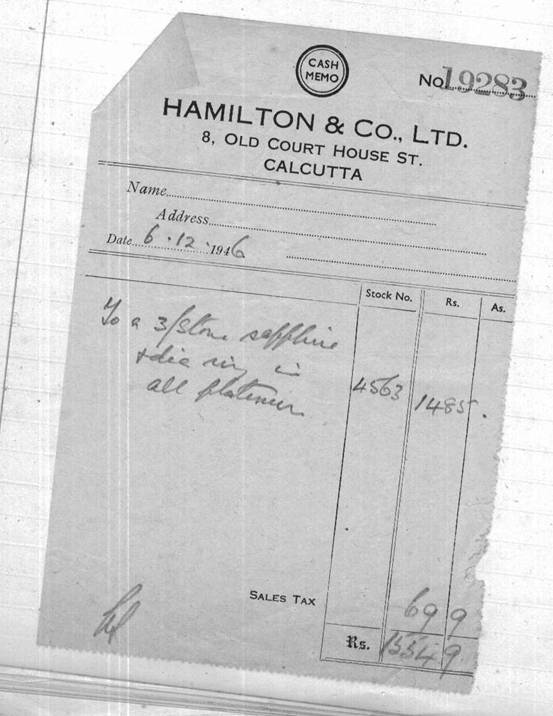 CASH
MEMO
No 19283
HAMILTON & CO., LTD.
8, OLD COURT HOUSE ST.
CALCUTTA
Name
Address
Date 6.12.1946
Stock No. Rs. As.
To a 3/stone sapphire
+ dia ring in
all platinum
4563 1485.
SALES TAX 69 9
Rs. 1554 9